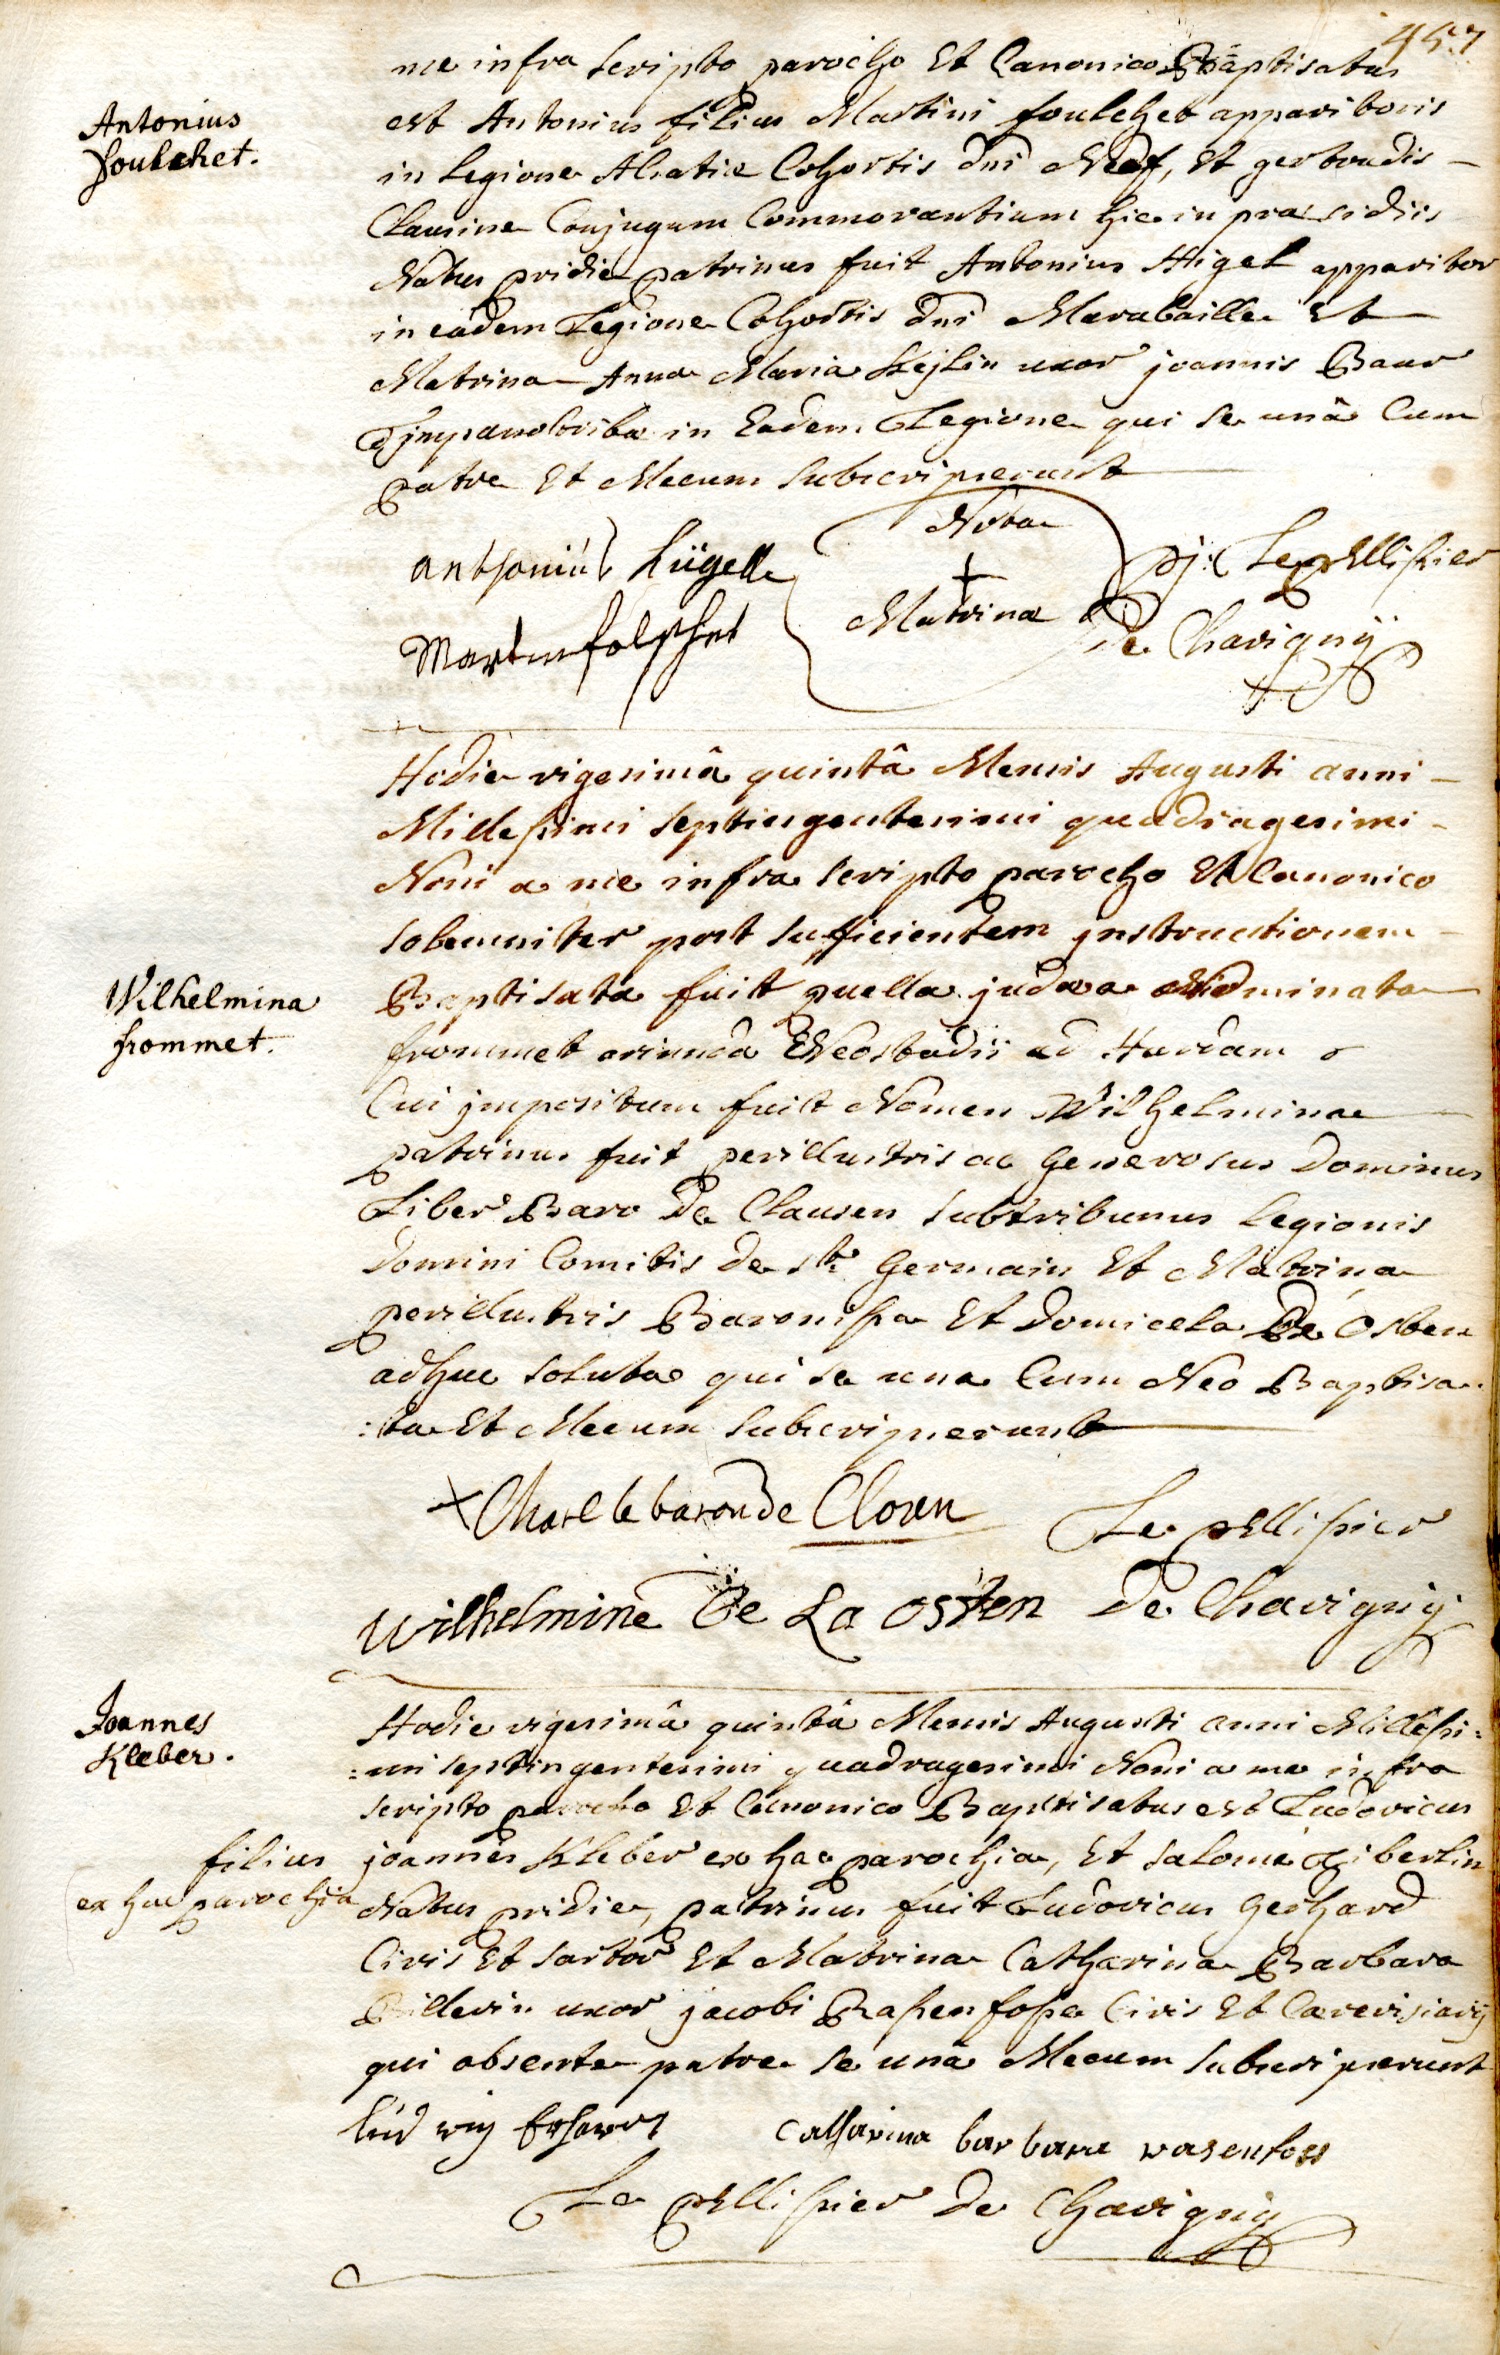 457
me infra scripto parocho Et Canonico Baptisatus
Antonius
foulchet.
est Antonius filius Martini foulchet apparitoris
in legione Alsatiæ Cohortis dni Neef, Et gertrudis
Clausine Conjugum Commorantium hic in præsidiis
Natus pridie patrinus fuit Antonius Higel apparitor
in eâdem Legione Cohortis dni Marabaille Et
Matrina Anna Maria Kejlin uxor joannis Baur
tijmpanotriba in Eadem Legione qui se unâ Cum
patre Et Mecum subscripserunt
Nota
+
Matrina
anthonius hügelle
Martin folschet
Le pellissier
De Chavignÿ
Hodie vigesimâ quintâ Mensis Augusti anni
Millessimi septingentesimi quadragesimi
Noni a me infra scripto parocho Et Canonico
solemniter post sufficientem jnstructionem
Wilhelmina
frommet.
Baptisata fuit puella judæa Nominata
frommet oriunda Neostadii ad Hardam
Cui jmpositum fuit Nomen Wilhelmina
patrinus fuit perillustris ac Generosus Dominus
Liber Baro De Clausen subtribunus legionis
Domini Comitis de st. Germain Et Matrina
perillustris Baronissa Et Domicella De Osten
adhuc soluta qui se una Cum Neo Baptisa
:ta Et Mecum subscripserunt
Charl le baron de Closen
Le pellissier
Wilhelmine De La Osten
De Chavignÿ
Joannes
Kleber.
Hodie vigesimâ quintâ Mensis Augusti anni Millessi:
:mi septingentesimi quadragesimi Noni a me infra
scripto parocho Et Canonico Baptisatus est Ludovicus
filius
joannes Kleber ex hac parochia, Et salome giberlin
ex hac parochia
Natus pridie, patrinus fuit Ludovicus Gerhard
Civis Et sartor Et Matrina Catharina Barbara
Billerin uxor jacobi Rassenfosse Civis Et Cærevisiarij
qui absente patre se unâ Mecum subscripserunt
Catharina barbara rasenfoss
Le pellissier De Chavignÿ